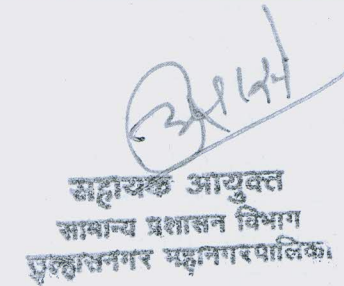 सहाय्यक आयुक्त
सामान्य प्रशासन विभाग
उल्हासनगर महानगरपालिका